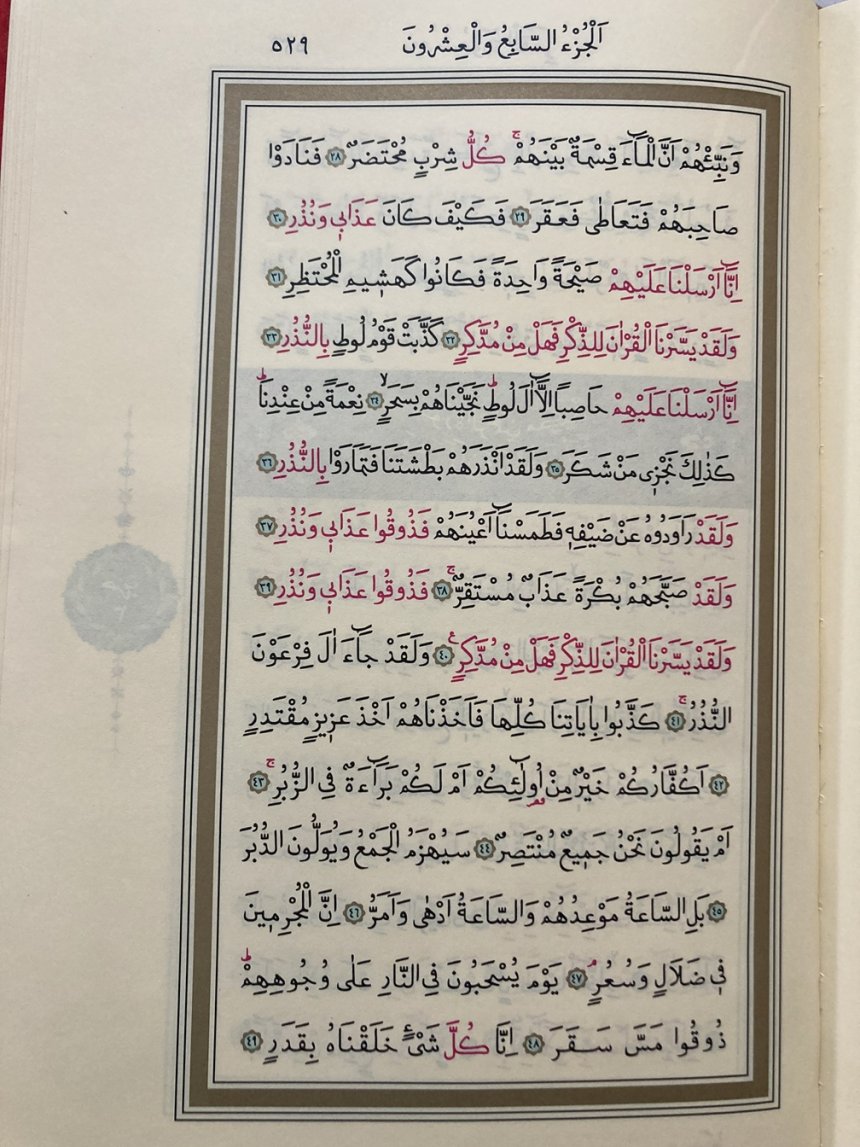 اَلْجُزْءُ السَّابِعُ وَالْعِشْرُونَ ٥٢٩
وَنَبِّئْهُمْ اَنَّ الْمَٓاءَ قِسْمَةٌ بَيْنَهُمْۚ كُلُّ شِرْبٍ مُحْتَضَرٌ ﴿٢٨﴾ فَنَادَوْا
صَاحِبَهُمْ فَتَعَاطٰى فَعَقَرَ ﴿٢٩﴾ فَكَيْفَ كَانَ عَذَابٖي وَنُذُرِ ﴿٣٠﴾
اِنَّٓا اَرْسَلْنَا عَلَيْهِمْ صَيْحَةً وَاحِدَةً فَكَانُوا كَهَشٖيمِ الْمُحْتَظِرِ ﴿٣١﴾
وَلَقَدْ يَسَّرْنَا الْقُرْاٰنَ لِلذِّكْرِ فَهَلْ مِنْ مُدَّكِرٍ ﴿٣٢﴾ كَذَّبَتْ قَوْمُ لُوطٍ بِالنُّذُرِ ﴿٣٣﴾
اِنَّٓا اَرْسَلْنَا عَلَيْهِمْ حَاصِبًا اِلَّٓا اٰلَ لُوطٍؕ نَجَّيْنَاهُمْ بِسَحَرٍۙ ﴿٣٤﴾ نِعْمَةً مِنْ عِنْدِنَاؕ
كَذٰلِكَ نَجْزٖي مَنْ شَكَرَ ﴿٣٥﴾ وَلَقَدْ اَنْذَرَهُمْ بَطْشَتَنَا فَتَمَارَوْا بِالنُّذُرِ ﴿٣٦﴾
وَلَقَدْ رَاوَدُوهُ عَنْ ضَيْفِهٖ فَطَمَسْنَٓا اَعْيُنَهُمْ فَذُوقُوا عَذَابٖي وَنُذُرِ ﴿٣٧﴾
وَلَقَدْ صَبَّحَهُمْ بُكْرَةً عَذَابٌ مُسْتَقِرٌّۚ ﴿٣٨﴾ فَذُوقُوا عَذَابٖي وَنُذُرِ ﴿٣٩﴾
وَلَقَدْ يَسَّرْنَا الْقُرْاٰنَ لِلذِّكْرِ فَهَلْ مِنْ مُدَّكِرٍࣖ ﴿٤٠﴾ وَلَقَدْ جَٓاءَ اٰلَ فِرْعَوْنَ
النُّذُرُۚ ﴿٤١﴾ كَذَّبُوا بِاٰيَاتِنَا كُلِّهَا فَاَخَذْنَاهُمْ اَخْذَ عَزٖيزٍ مُقْتَدِرٍ
﴿٤٢﴾ اَكُفَّارُكُمْ خَيْرٌ مِنْ اُو۬لٰٓئِكُمْ اَمْ لَكُمْ بَرَٓاءَةٌ فِي الزُّبُرِۚ ﴿٤٣﴾
اَمْ يَقُولُونَ نَحْنُ جَمٖيعٌ مُنْتَصِرٌ ﴿٤٤﴾ سَيُهْزَمُ الْجَمْعُ وَيُوَلُّونَ الدُّبُرَ
﴿٤٥﴾ بَلِ السَّاعَةُ مَوْعِدُهُمْ وَالسَّاعَةُ اَدْهٰى وَاَمَرُّ ﴿٤٦﴾ اِنَّ الْمُجْرِمٖينَ
فٖي ضَلَالٍ وَسُعُرٍۘ ﴿٤٧﴾ يَوْمَ يُسْحَبُونَ فِي النَّارِ عَلٰى وُجُوهِهِمْؕ
ذُوقُوا مَسَّ سَقَرَ ﴿٤٨﴾ اِنَّا كُلَّ شَيْءٍ خَلَقْنَاهُ بِقَدَرٍ ﴿٤٩﴾